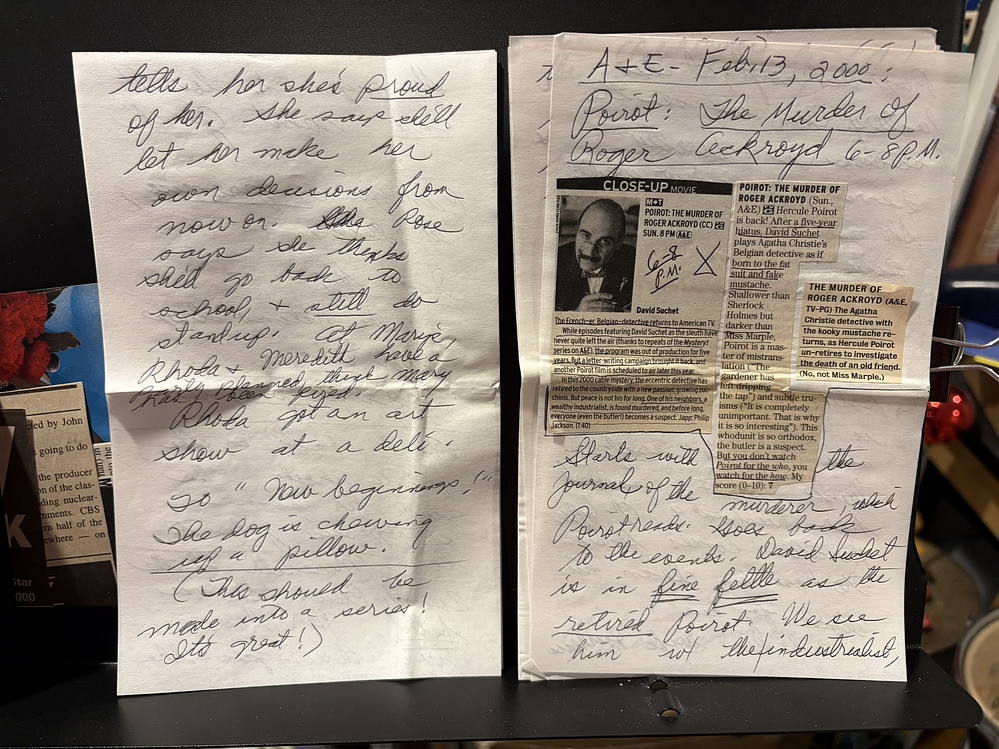 tells her she's proud
of her. She says she'll
let her make her
own decisions from
now on. Rose
says she thinks
she'd go back to
school, & still do
standup. At Marj's
Rhoda & Meredith have a
party planned, think Mary
Rhoda got an art
show at a deli.
To "New beginnings,"
The dog is chewing
up a pillow.
(This should be
made into a series!
It's great!)
A & E - Feb. 13, 2000:
Poirot: The Murder of
Roger Ackroyd 6-8 P.M.
CLOSE-UP MOVIE
POIROT: THE MURDER OF
ROGER ACKROYD (CC)
SUN. 8 PM (A&E)
6-8
P.M.
David Suchet
The French-er, Belgian-detective returns to American TV.
While episodes featuring David Suchet as the sleuth have
never quite left the air (thanks to repeats of the Mystery!
series on A&E), the program was out of production for five
years. But a letter-writing campaign brought it back, and
another Poirot film is scheduled to air later this year.
In this 2000 cable mystery, the eccentric detective has
retired to the countryside with a new passion: growing zuc-
chinis. But peace is not his for long. One of his neighbors, a
wealthy industrialist, is found murdered, and before long,
everyone (even the butler!) becomes a suspect. Japp: Philip
Jackson. (1:40)
POIROT: THE MURDER OF
ROGER ACKROYD (Sun.,
A&E) Hercule Poirot
is back! After a five-year
hiatus, David Suchet
plays Agatha Christie's
Belgian detective as if
born to the fat
suit and fake
mustache.
Shallower than
Sherlock
Holmes but
darker than
Miss Marple,
Poirot is a mas-
ter of mistrans-
lation ("The
gardener has
left dripping
the tap") and subtle tru-
isms ("It is completely
unimportant. That is why
it is so interesting"). This
whodunit is so orthodox,
the butler is a suspect.
But you don't watch
Poirot for the who, you
watch for the how. My
score (0–10): 7
THE MURDER OF
ROGER ACKROYD (A&E,
TV-PG) The Agatha
Christie detective with
the kooky mustache re-
turns, as Hercule Poirot
un-retires to investigate
the death of an old friend.
(No, not Miss Marple.)
Starts with the
journal of the murderer, which
Poirot reads. Goes back
to the events. David Suchet
is in fine fettle as the
retired Poirot. We see
him w/ the industrialist,
ded by John
s going to do
the producer
n of the clas-
ding nuclear-
nments. CBS
rn half of the
ewhere — on
K
Star
000